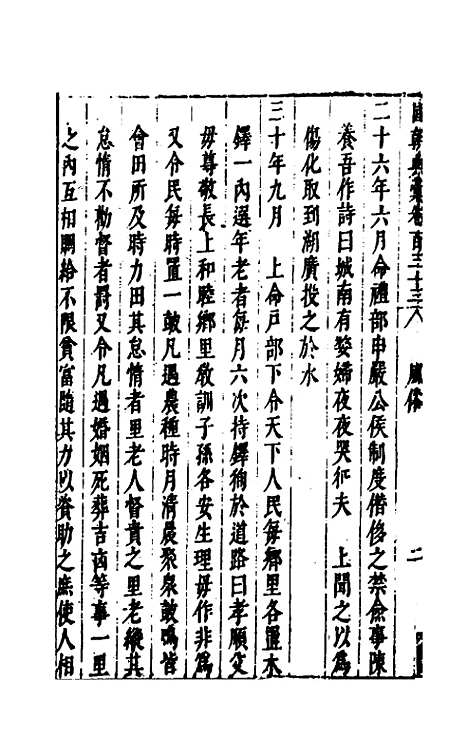 國朝典彙卷百三十三 風俗 二
二十六年六月命禮部申嚴公侯制度僭侈之禁僉事陳
養吾作詩曰城南有嫠婦夜夜哭征夫 上聞之以爲
傷化取到湖廣投之於水
三十年九月 上命戸部下令天下人民每鄉里各置木
鐸一內選年老者每月六次持鐸徇於道路曰孝順父
母尊敬長上和睦鄉里敎訓子孫各安生理毋作非爲
又令民每時置一鼓凡遇農種時月清晨聚衆鼓鳴皆
會田所及時力田其怠惰者里老人督責之里老縱其
怠惰不勸督者罰又令凡遇婚姻死葬吉凶等事一里
之內互相賙給不限貧富隨其力以資助之庶使人相